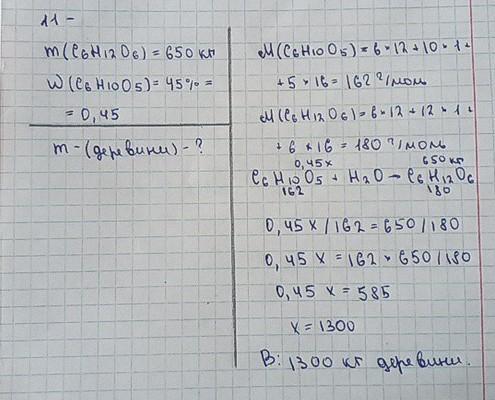 11 -
m(C6H12O6) = 650 кг
W(C6H10O5) = 45% =
= 0,45
m - (деревини) - ?
M(C6H10O5) = 6 * 12 + 10 * 1 +
+ 5 * 16 = 162 г/моль
M(C6H12O6) = 6 * 12 + 12 * 1 +
+ 6 * 16 = 180 г/моль
0,45x 650 кг
C6H10O5 + H2O → C6H12O6
162 180
0,45 x / 162 = 650 / 180
0,45 x = 162 * 650 / 180
0,45 x = 585
x = 1300
В: 1300 кг деревини.